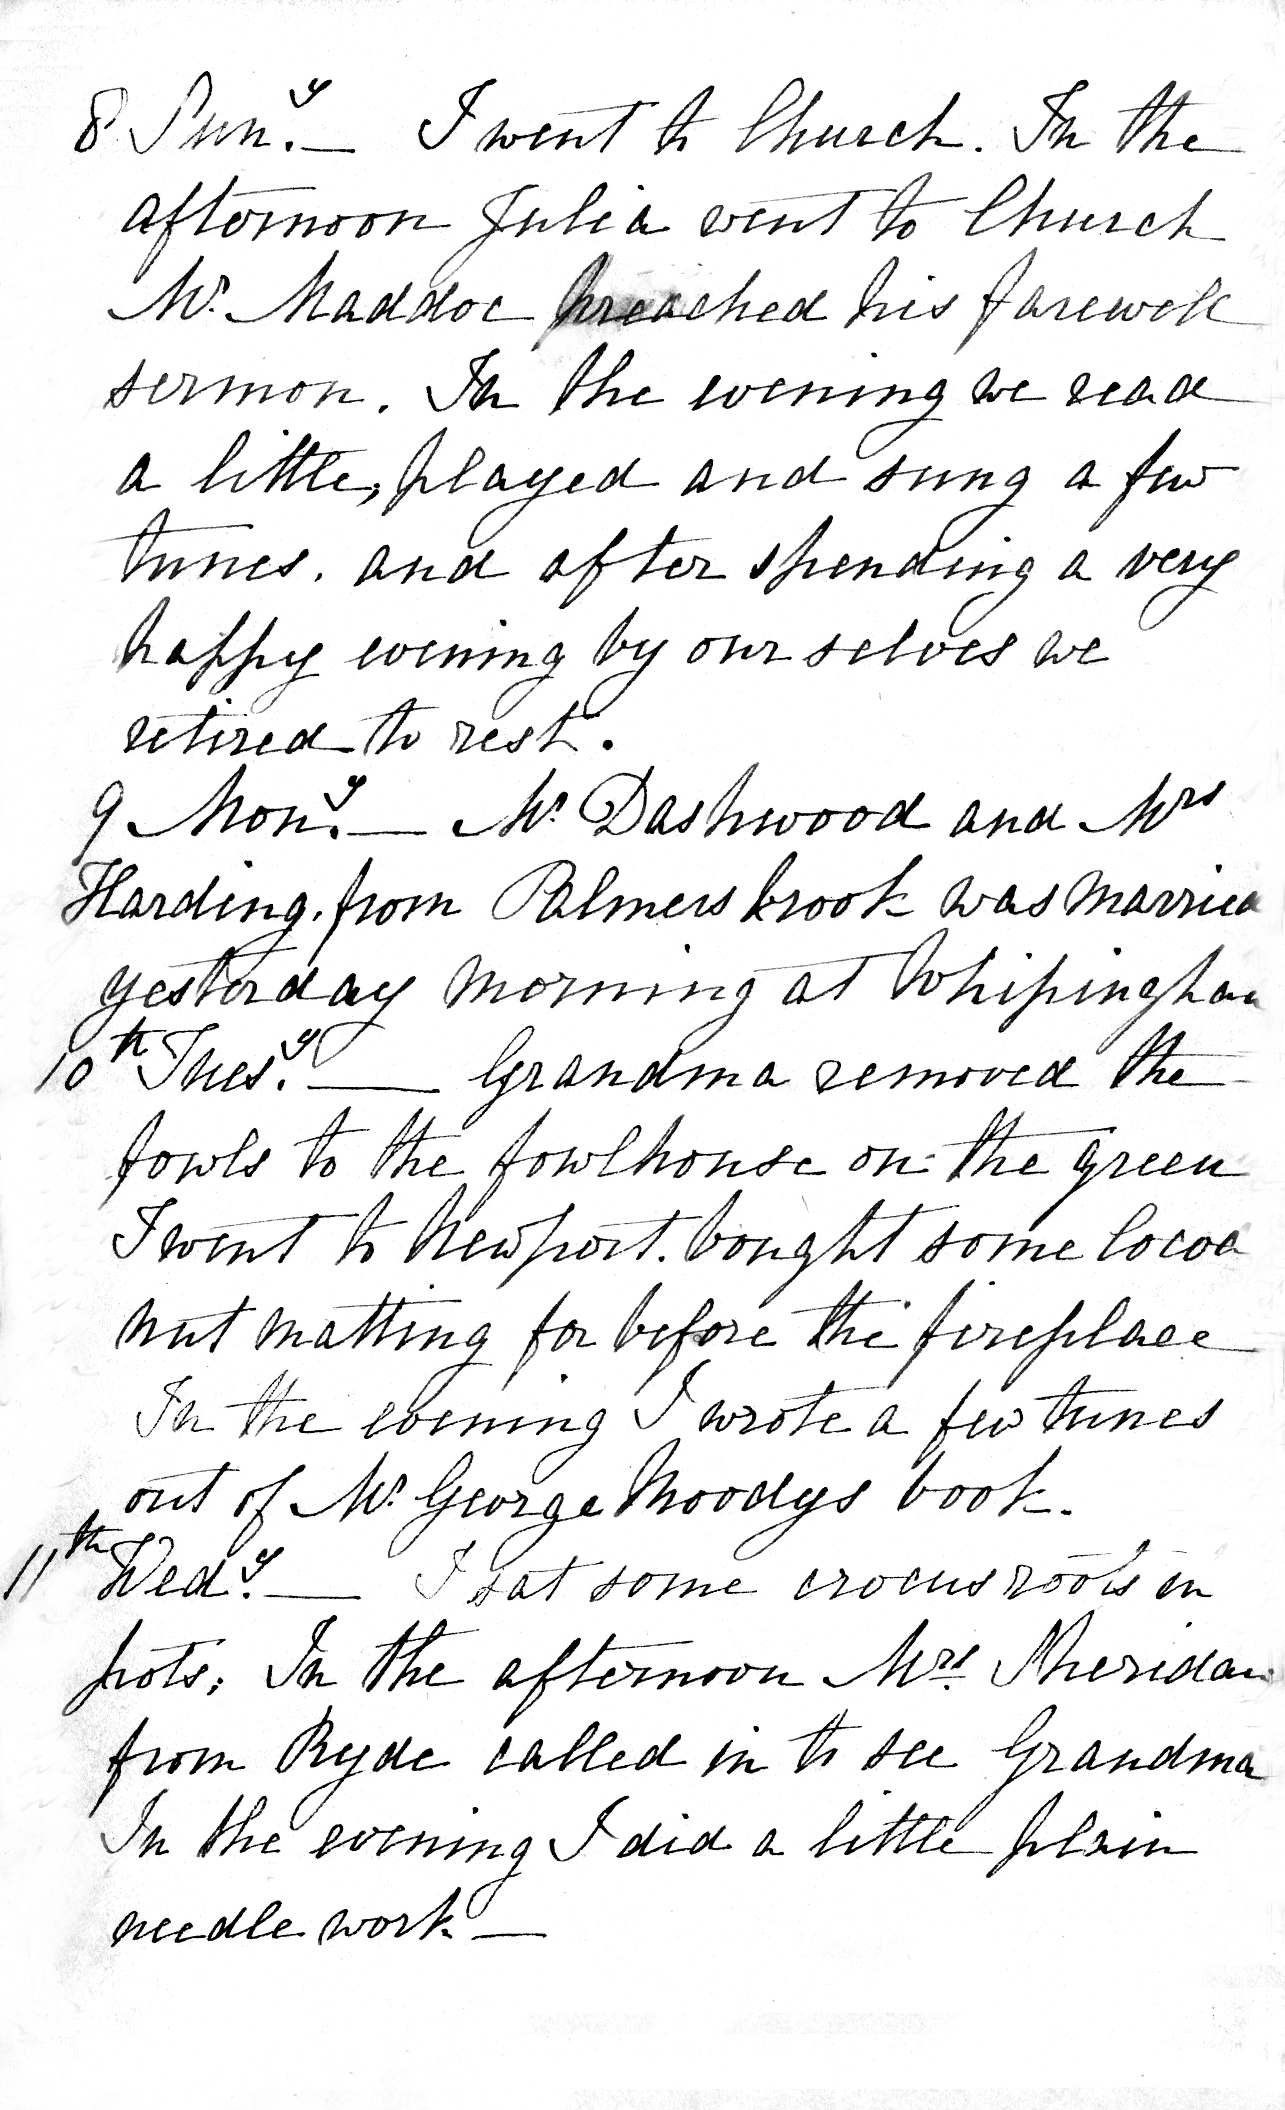 8 Sun.y — I went to Church. In the
afternoon Julia went to Church
Mr. Maddoc preached his farewell
sermon. In the evening we read
a little, played and sung a few
tunes. and after spending a very
happy evening by ourselves we
retired to rest.
9 Mon.y — Mr. Dashwood and Mrs
Harding. from Palmersbrook was married
yesterday morning at Whipingham
10th Tues.y — Grandma removed the
fowls to the fowlhouse on the green
I went to Newport. bought some Cocoa
nut matting for before the fireplace
In the evening I wrote a few tunes
out of Mr. George Moodys book.
11th Wed.y — I sat some crocus roots in
pots; In the afternoon Mrs. Sheridan
from Ryde called in to see Grandma
In the evening I did a little plain
needle work —